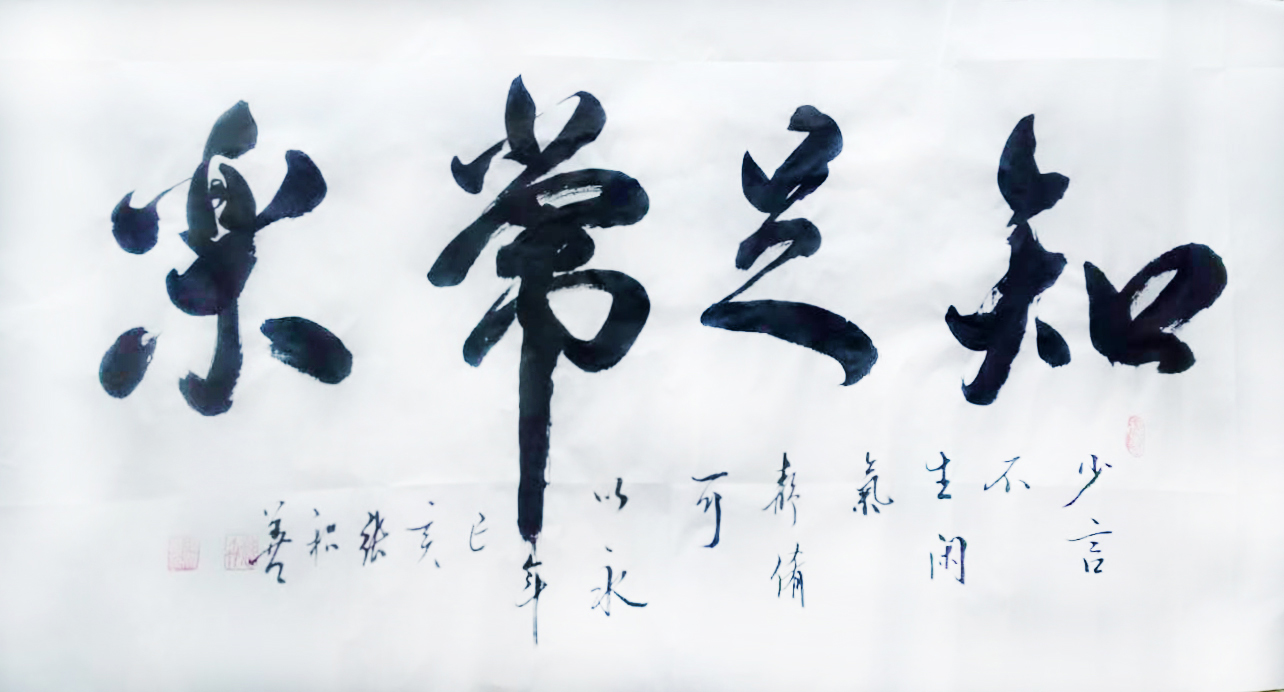 知足常樂
少言不生闲氣静脩可以永年
己亥張和善